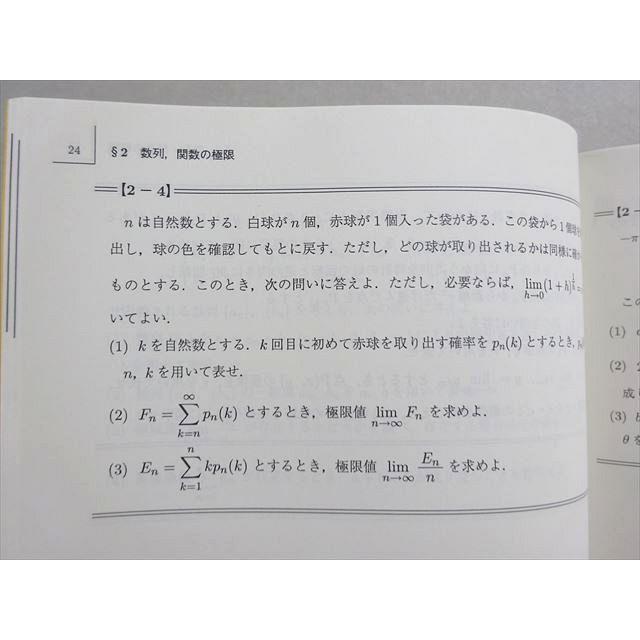 24
§2 数列，関数の極限
【2－4】
n は自然数とする．白球が n 個，赤球が 1 個入った袋がある．この袋から 1 個
出し，球の色を確認してもとに戻す．ただし，どの球が取り出されるかは同様に確
ものとする．このとき，次の問いに答えよ．ただし，必要ならば，lim_{h→0}(1+h)^{1/h} =
いてよい．
(1) k を自然数とする．k 回目に初めて赤球を取り出す確率を p_n(k) とするとき，
n, k を用いて表せ．
(2) F_n = Σ_{k=n}^{∞} p_n(k) とするとき，極限値 lim_{n→∞} F_n を求めよ．
(3) E_n = Σ_{k=1}^{n} kp_n(k) とするとき，極限値 lim_{n→∞} E_n/n を求めよ．
【2－
－π
この
(1)
(2)
成
(3)
θを